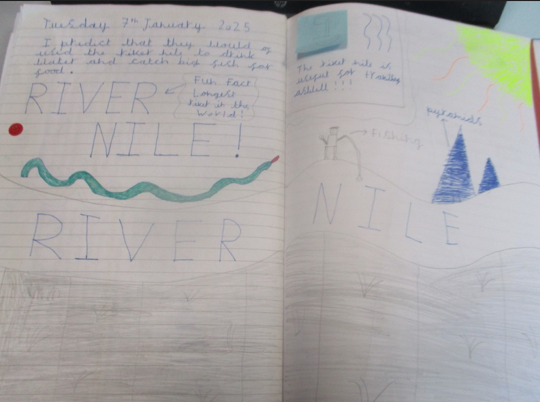 Tuesday 7th January 2025
I predict that they would of
used the river nile to drink
water and catch big fish for
food.
RIVER
Fun Fact
Longest
river in the
world!
NILE!
RIVER
The river nile is
useful for
pyramids
fishing
NILE